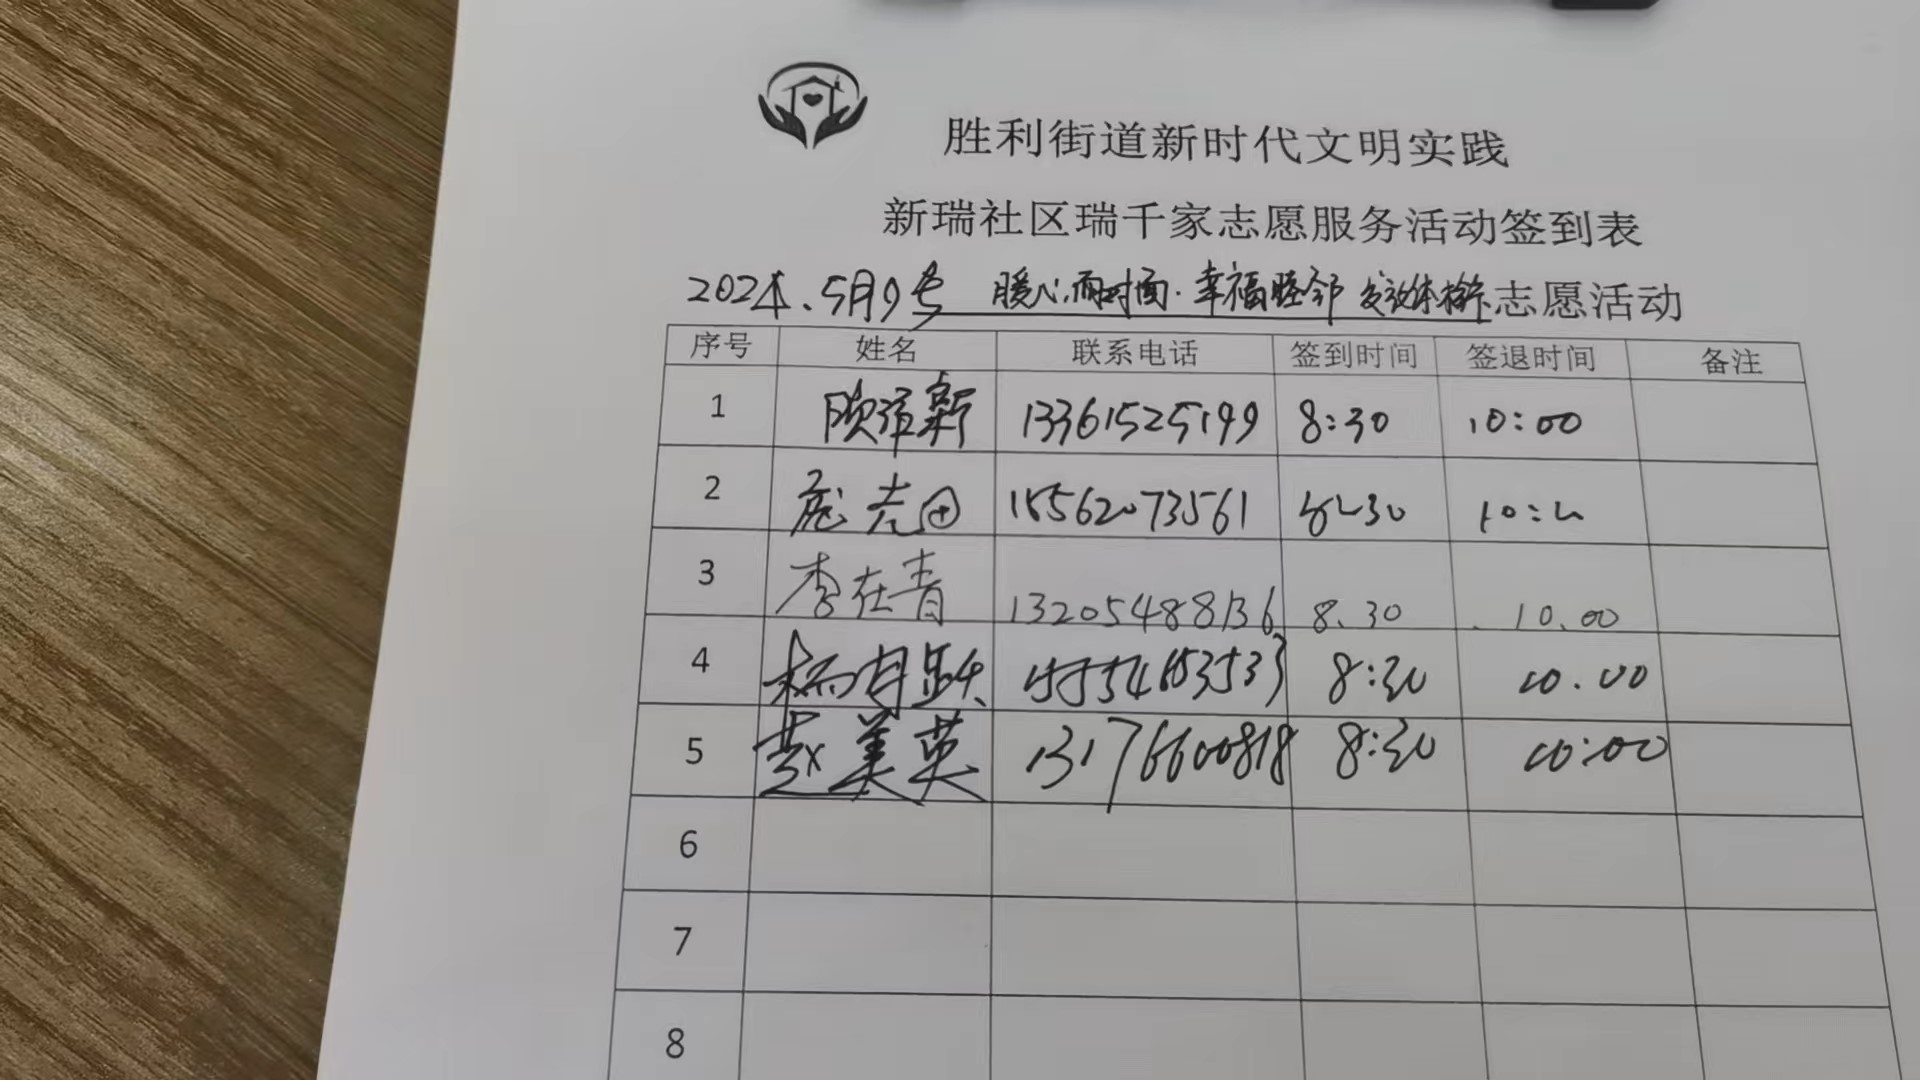 胜利街道新时代文明实践
新瑞社区瑞千家志愿服务活动签到表
2024.5月9号 暖心面对面·幸福睦邻 志愿活动
序号 姓名 联系电话 签到时间 签退时间 备注
1 13361525199 8:30 10:00
2 15562073561 8:30 10:00
3 李在青 13205488136 8.30 10.00
4 杨月跃 8:30 10.00
5 赵美英 13176600818 8:30 10:00
6
7
8